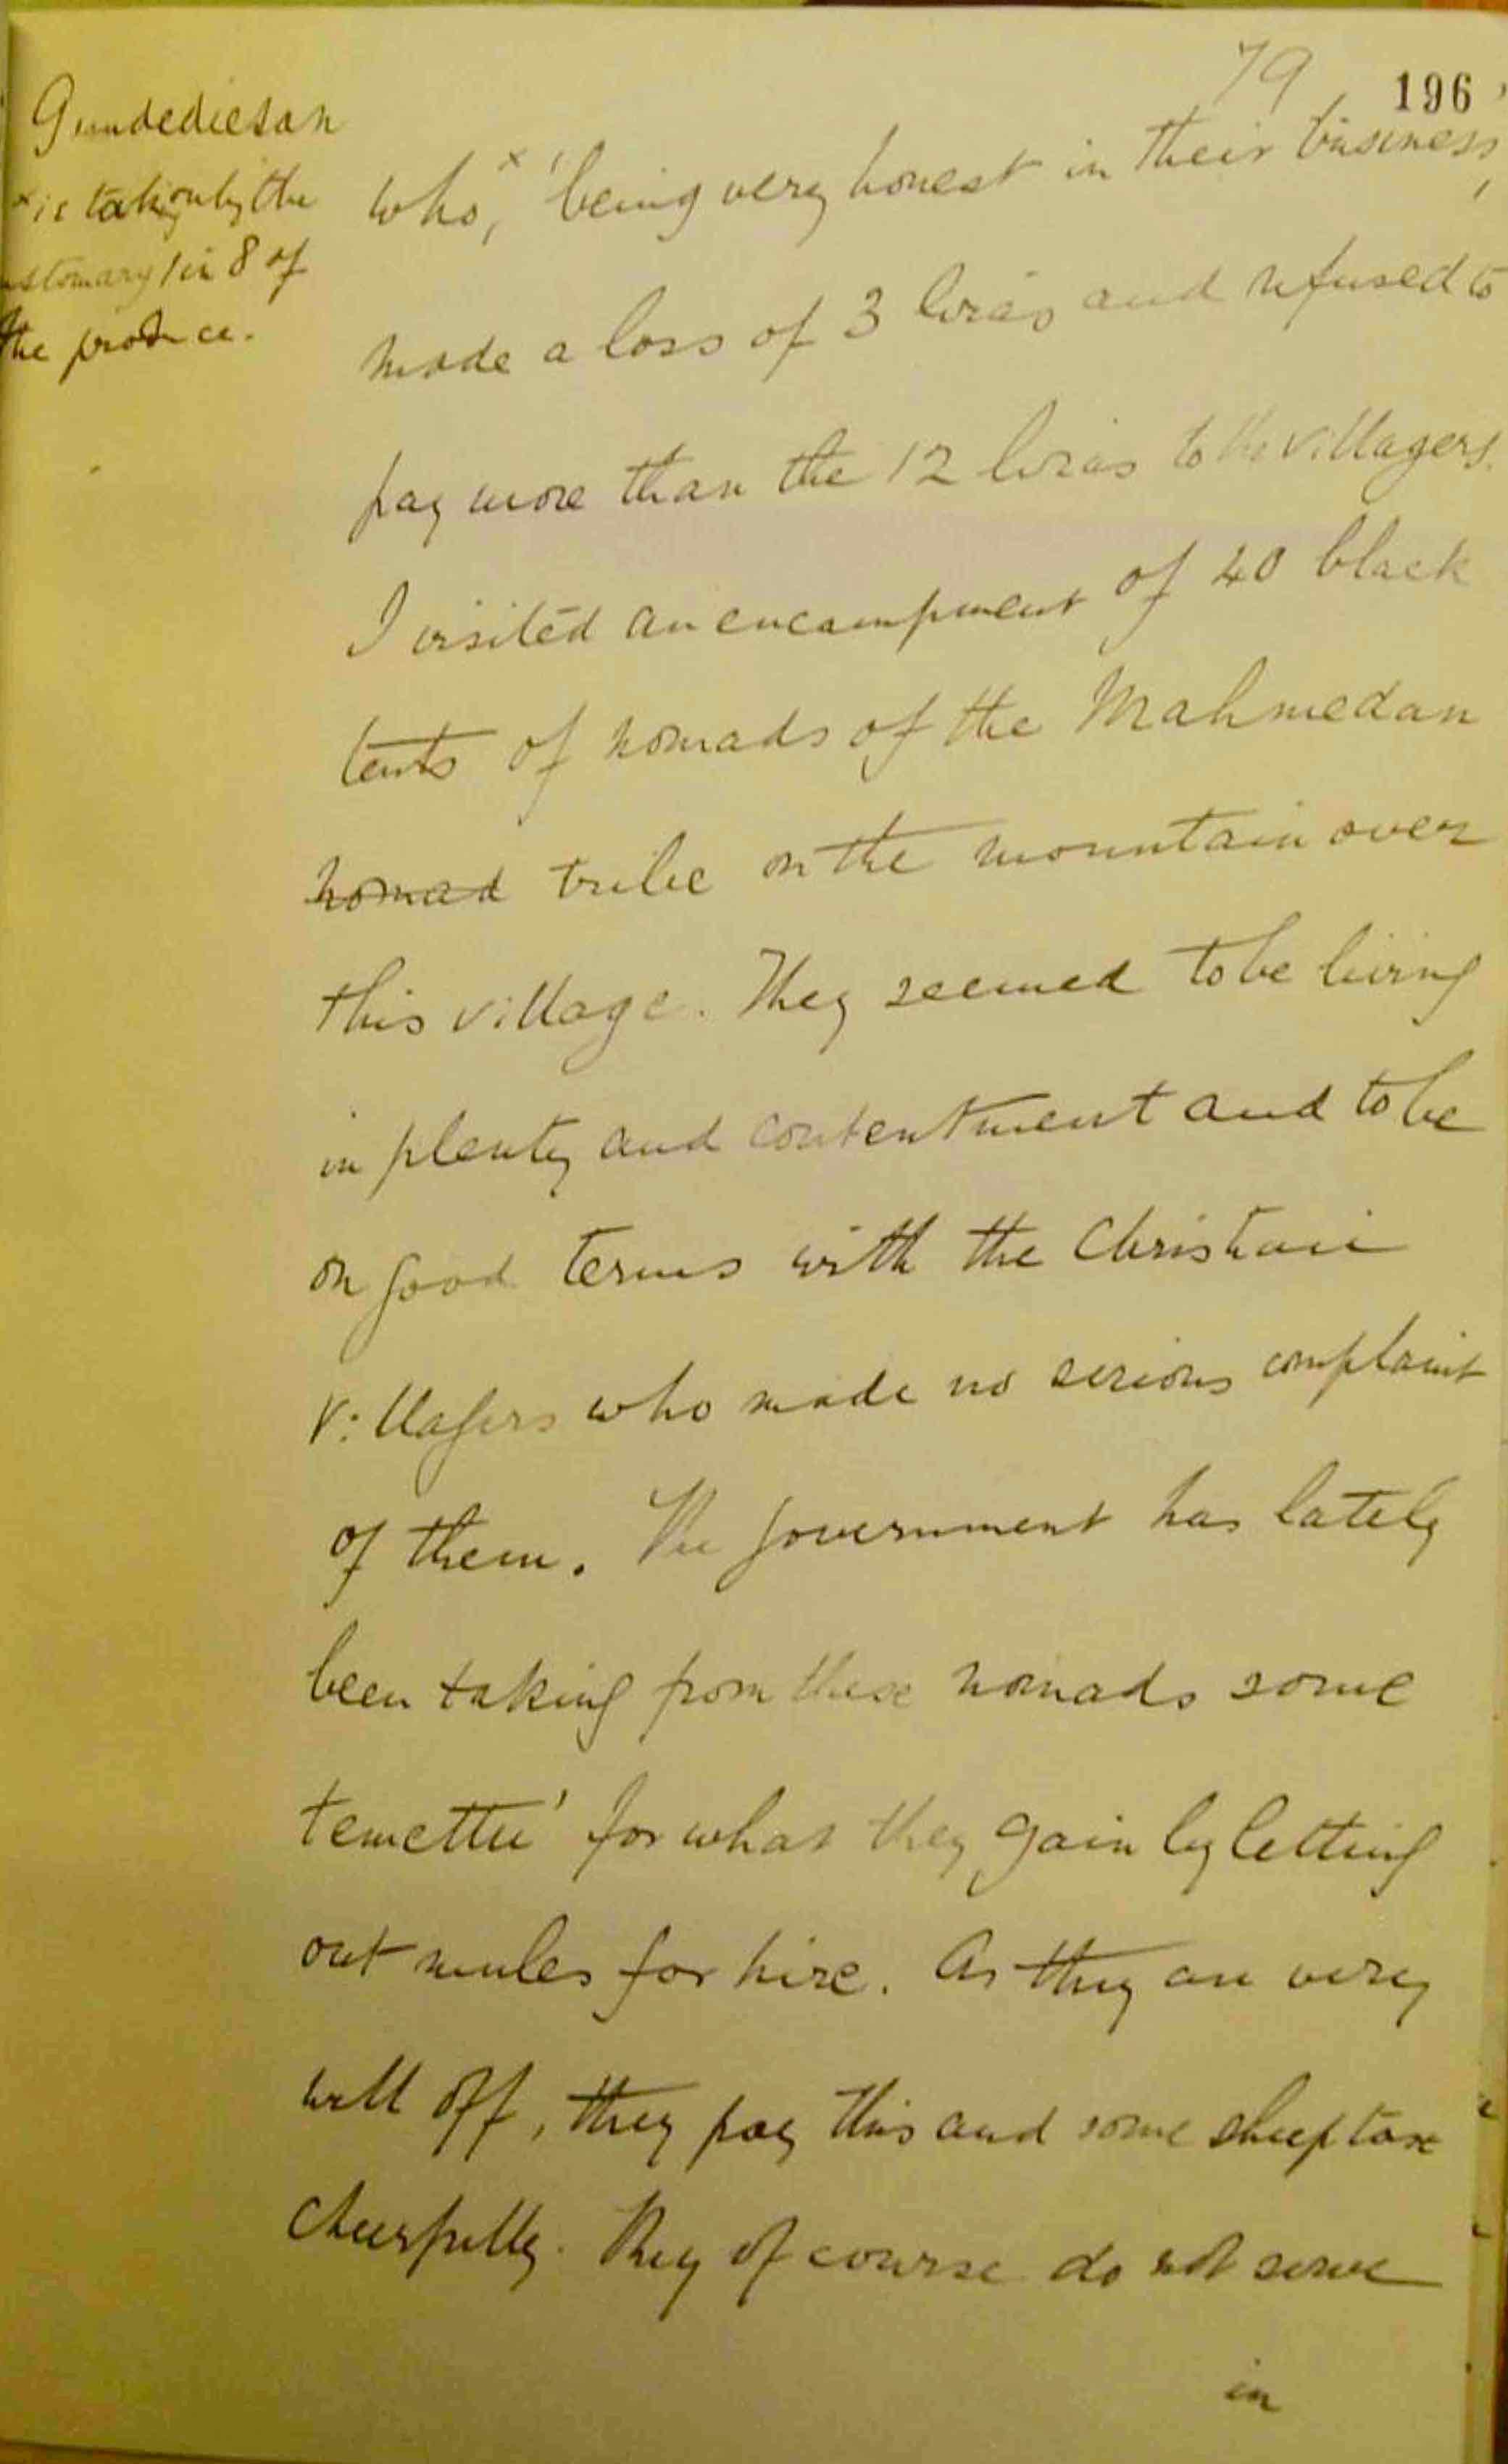 79
196
Gundediesan
x is taking by the
customary 1 in 8 of
the produce.
who, x being very honest in their business,
made a loss of 3 liras and refused to
pay more than the 12 liras to the villagers.
I visited an encampment of 40 black
tents of nomads of the Mahmedan
nomad tribe on the mountain over
this village. They seemed to be living
in plenty and contentment and to be
on good terms with the Christian
villagers who made no serious complaint
of them. The government has lately
been taking from these nomads some
temettu' for what they gain by letting
out mules for hire. As they are very
well off, they pay this and some sheep tax
cheerfully. They of course do not serve
in